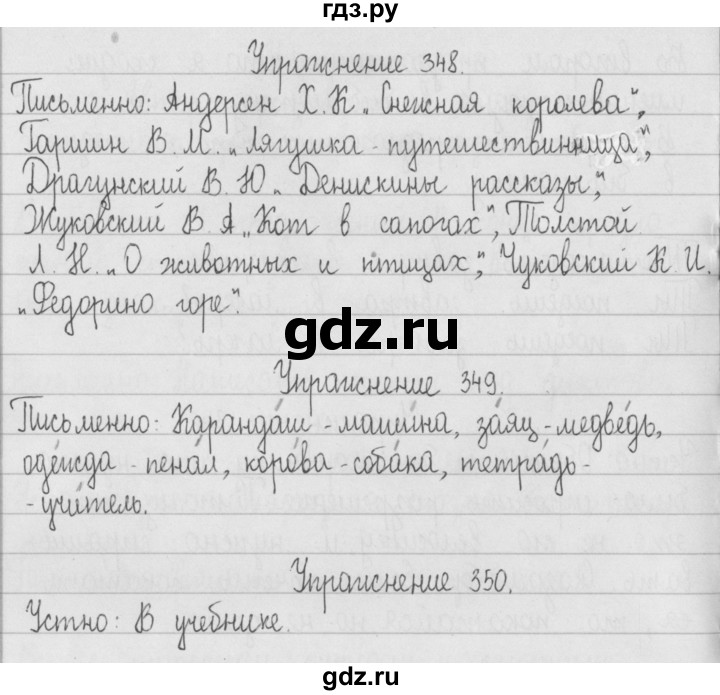 гдз.ру
Упражнение 348.
Письменно: Андерсен Х. К „Снежная королева",
Гаршин В. М. „Лягушка - путешественница",
Драгунский В. Ю „Денискины рассказы",
Жуковский В. А „Кот в сапогах", Толстой
Л. Н. „О животных и птицах", Чуковский К И.
„Федорино горе".
gdz.ru
Упражнение 349.
Письменно: Каранда́ш - маши́на, за́яц - медве́дь,
оде́жда - пена́л, коро́ва - соба́ка, тетра́дь -
- учи́тель.
Упражнение 350.
Устно: В учебнике.
gdz.ru